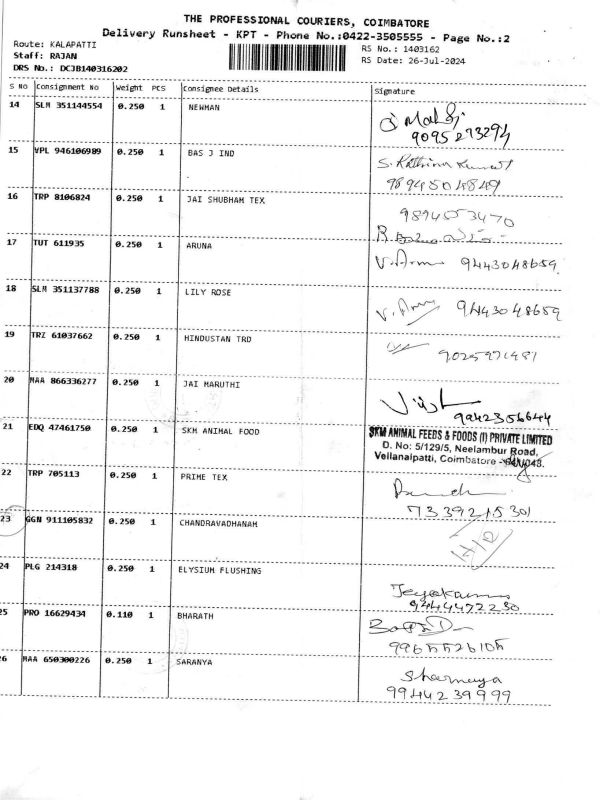 THE PROFESSIONAL COURIERS, COIMBATORE
Delivery Runsheet - KPT - Phone No.:0422-3505555 - Page No.:2
Route: KALAPATTI
Staff: RAJAN
DRS No.: DCJB140316202
RS No.: 1403162
RS Date: 26-Jul-2024
S No Consignment No Weight PCS Consignee Details Signature
14 SLM 351144554 0.250 1 NEWMAN
9095273294
15 VPL 946106989 0.250 1 BAS J IND
S. Rathina Kumar
9894504849
16 TRP 8106824 0.250 1 JAI SHUBHAM TEX
9894053470
17 TUT 611935 0.250 1 ARUNA
V. Arun 9443048659
18 SLM 351137788 0.250 1 LILY ROSE
V. Arun 9443048659
19 TRZ 61037662 0.250 1 HINDUSTAN TRD
9025971481
20 MAA 866336277 0.250 1 JAI MARUTHI
9942356644
21 EDQ 47461750 0.250 1 SKM ANIMAL FOOD
SKM ANIMAL FEEDS & FOODS (I) PRIVATE LIMITED
D. No: 5/129/5, Neelambur Road,
Vellanaipatti, Coimbatore -
22 TRP 705113 0.250 1 PRIME TEX
7339215301
23 GGN 911105832 0.250 1 CHANDRAVADHANAM
24 PLG 214318 0.250 1 ELYSIUM FLUSHING
Jeyakumar
9444472230
25 PRO 16629434 0.110 1 BHARATH
9965526105
26 MAA 650300226 0.250 1 SARANYA
Sharnaya
9944239999